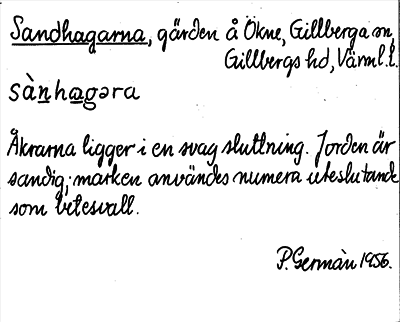 Sandhagarna, gärden å Ökne, Gillberga sn,
Gillbergs hd, Värml. l.
sàn̲ha̲gəra
Åkrarna ligger i en svag sluttning. Jorden är
sandig; marken användes numera uteslutande
som betesvall.
P. Germàn 1956.